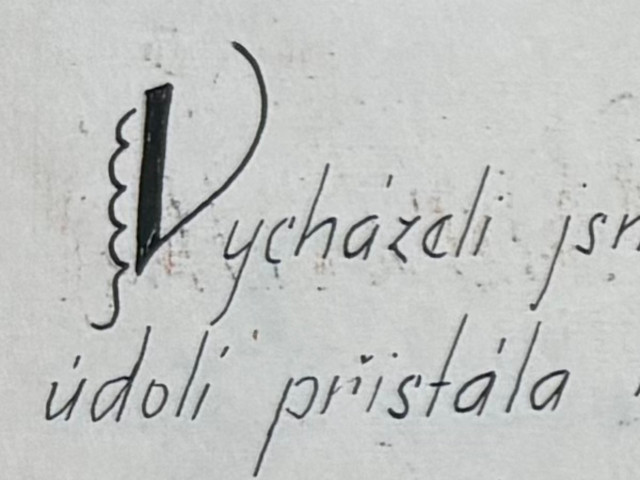 Vycházeli jsm
údolí přistála